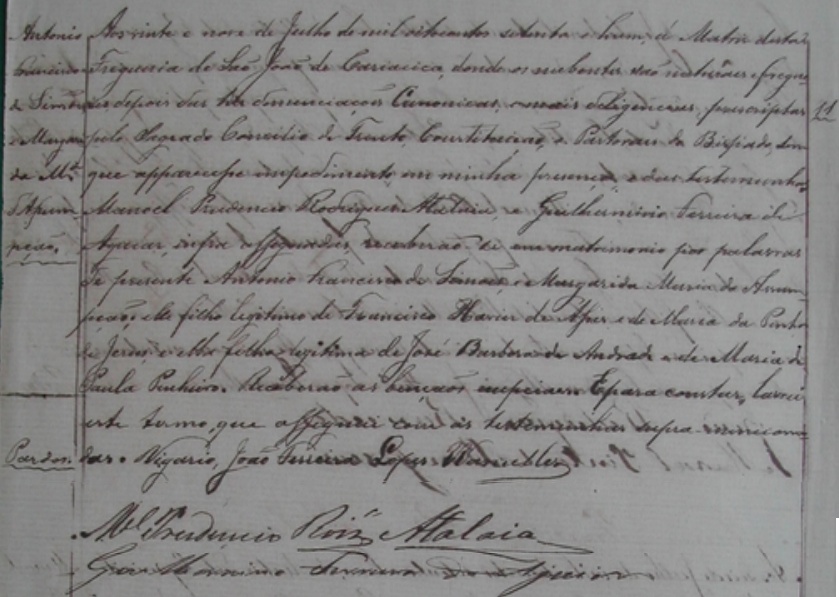 Antonio
Francisco
de Simões
e Margari
da M.ª
d'Assum
pção.
Pardos.
14
Aos vinte e nove de Julho de mil oitocentos setenta e hum, n'esta Matriz desta
Freguesia de São João de Cariacica, donde os nubentes são naturaes e fregue
zes depois das tres denunciações Canonicas, e mais deligencias prescriptas
pelo Sagrado Concilio de Trento, Constituiçao, e Pastoraes do Bispado, sem
que apparecesse impedimento em minha presença e das testemunhas
Manoel Prudencio Rodrigues Atalaia, e Guilhermino Ferreira de
Aguiar, infra assignados, receberão-se em matrimonio por palavras
de presente Antonio Francisco de Simões, e Margarida Maria da Assum
pção, elle filho legitimo de Francisco Xavier de e de Maria da Penha
de Jesus, e ella filha legitima de José Barbosa de Andrade e de Maria de
Paula Pinheiro. Receberão as bençãos nupciaes. E para constar, lavrei
este termo, que assignei com as testemunhas supra-menciona
das. O Vigario, João Ferreira Lopes
M.el Prudencio Roiz Atalaia
Guilhermino Ferreira de Aguiar